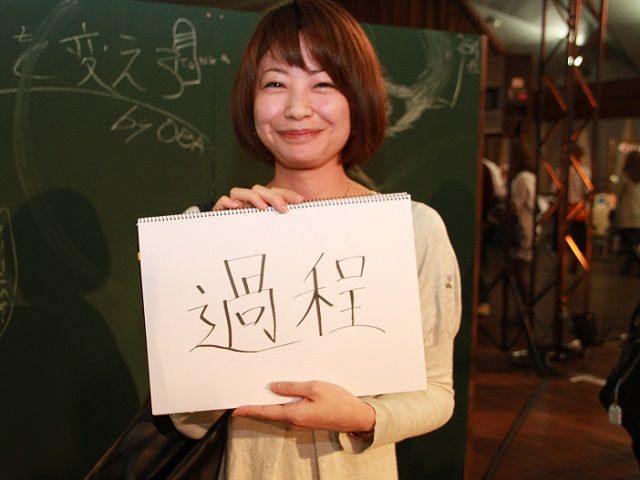 を変える
by OBA
過程